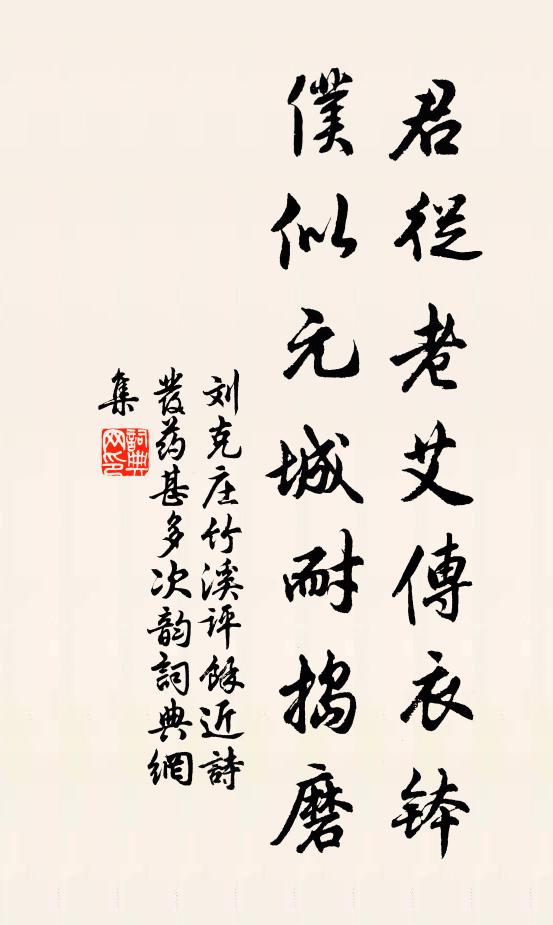 君從老艾傳衣鉢
僕似元城耐搗磨
刘克庄竹溪评餘近詩
發药甚多次韵詞典網
集
詞典網印